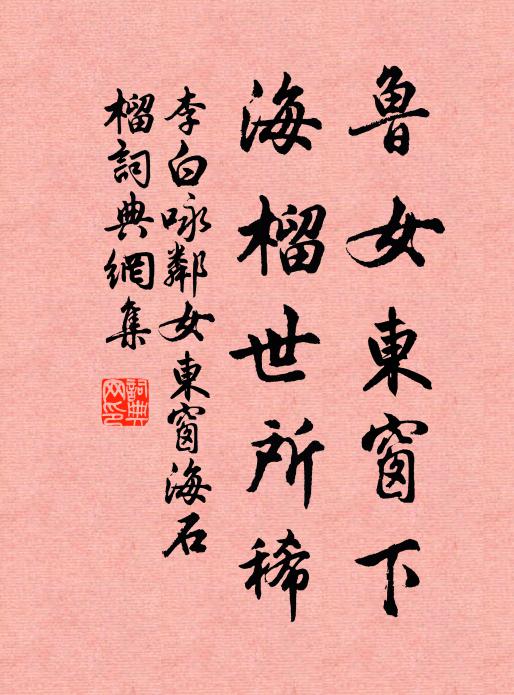 魯女東窗下
海榴世所稀
李白咏鄰女東窗海石
榴詞典網集
詞典
网印